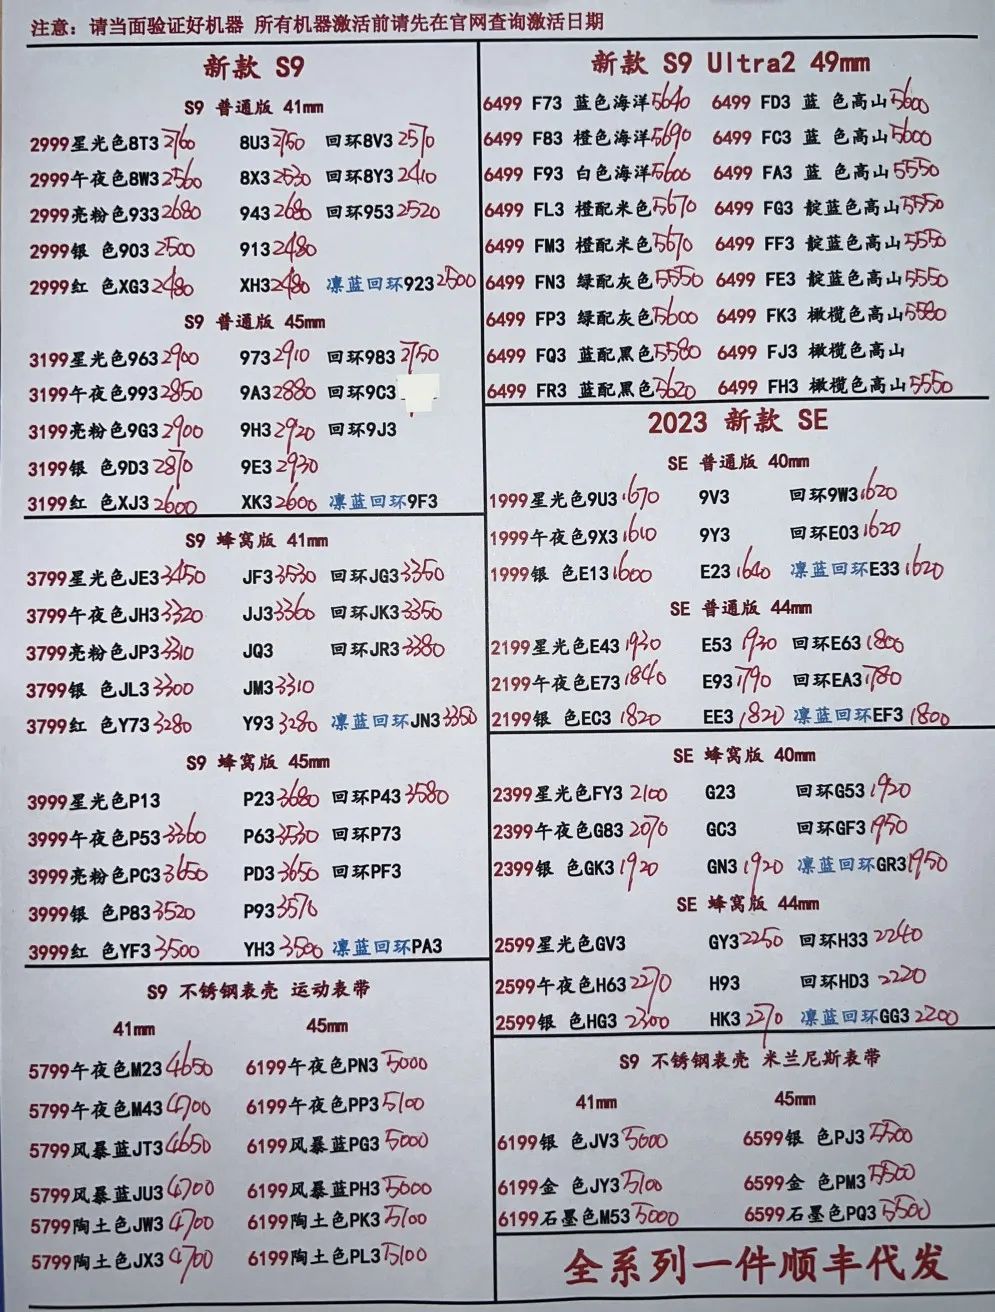 注意：请当面验证好机器 所有机器激活前请先在官网查询激活日期
新款 S9
S9 普通版 41mm
2999星光色8T3 2760 8U3 2750 回环8V3 2570
2999午夜色8W3 2560 8X3 2530 回环8Y3 2410
2999亮粉色933 2680 943 2680 回环953 2520
2999银 色903 2500 913 2480
2999红 色XG3 2480 XH3 2480 凛蓝回环923 2500
S9 普通版 45mm
3199星光色963 2900 973 2910 回环983 2750
3199午夜色993 2850 9A3 2880 回环9C3
3199亮粉色9G3 2900 9H3 2920 回环9J3
3199银 色9D3 2870 9E3 2930
3199红 色XJ3 2600 XK3 2600 凛蓝回环9F3
S9 蜂窝版 41mm
3799星光色JE3 3450 JF3 3530 回环JG3 3350
3799午夜色JH3 3320 JJ3 3360 回环JK3 3350
3799亮粉色JP3 3310 JQ3 回环JR3 3380
3799银 色JL3 3300 JM3 3310
3799红 色Y73 3280 Y93 3280 凛蓝回环JN3 3350
S9 蜂窝版 45mm
3999星光色P13 P23 3680 回环P43 3580
3999午夜色P53 3360 P63 3530 回环P73
3999亮粉色PC3 3650 PD3 3650 回环PF3
3999银 色P83 3520 P93 3570
3999红 色YF3 3500 YH3 3500 凛蓝回环PA3
S9 不锈钢表壳 运动表带
41mm 45mm
5799午夜色M23 4650 6199午夜色PN3 5000
5799午夜色M43 4700 6199午夜色PP3 5100
5799风暴蓝JT3 4650 6199风暴蓝PG3 5000
5799风暴蓝JU3 4700 6199风暴蓝PH3 5000
5799陶土色JW3 4700 6199陶土色PK3 5100
5799陶土色JX3 4700 6199陶土色PL3 5100
新款 S9 Ultra2 49mm
6499 F73 蓝色海洋 5640 6499 FD3 蓝 色高山 5600
6499 F83 橙色海洋 5690 6499 FC3 蓝 色高山 5600
6499 F93 白色海洋 5600 6499 FA3 蓝 色高山 5550
6499 FL3 橙配米色 5670 6499 FG3 靛蓝色高山 5550
6499 FM3 橙配米色 5670 6499 FF3 靛蓝色高山 5550
6499 FN3 绿配灰色 5550 6499 FE3 靛蓝色高山 5550
6499 FP3 绿配灰色 5600 6499 FK3 橄榄色高山 5580
6499 FQ3 蓝配黑色 5580 6499 FJ3 橄榄色高山
6499 FR3 蓝配黑色 5620 6499 FH3 橄榄色高山 5550
2023 新款 SE
SE 普通版 40mm
1999星光色9U3 1670 9V3 回环9W3 1620
1999午夜色9X3 1610 9Y3 回环E03 1620
1999银 色E13 1600 E23 1640 凛蓝回环E33 1620
SE 普通版 44mm
2199星光色E43 1930 E53 1930 回环E63 1800
2199午夜色E73 1840 E93 1790 回环EA3 1780
2199银 色EC3 1820 EE3 1820 凛蓝回环EF3 1800
SE 蜂窝版 40mm
2399星光色FY3 2100 G23 回环G53 1920
2399午夜色G83 2070 GC3 回环GF3 1950
2399银 色GK3 1920 GN3 1920 凛蓝回环GR3 1950
SE 蜂窝版 44mm
2599星光色GV3 GY3 2250 回环H33 2240
2599午夜色H63 2270 H93 回环HD3 2220
2599银 色HG3 2300 HK3 2270 凛蓝回环GG3 2200
S9 不锈钢表壳 米兰尼斯表带
41mm 45mm
6199银 色JV3 5000 6599银 色PJ3 5500
6199金 色JY3 5100 6599金 色PM3 5500
6199石墨色M53 5000 6599石墨色PQ3 5500
全系列一件顺丰代发